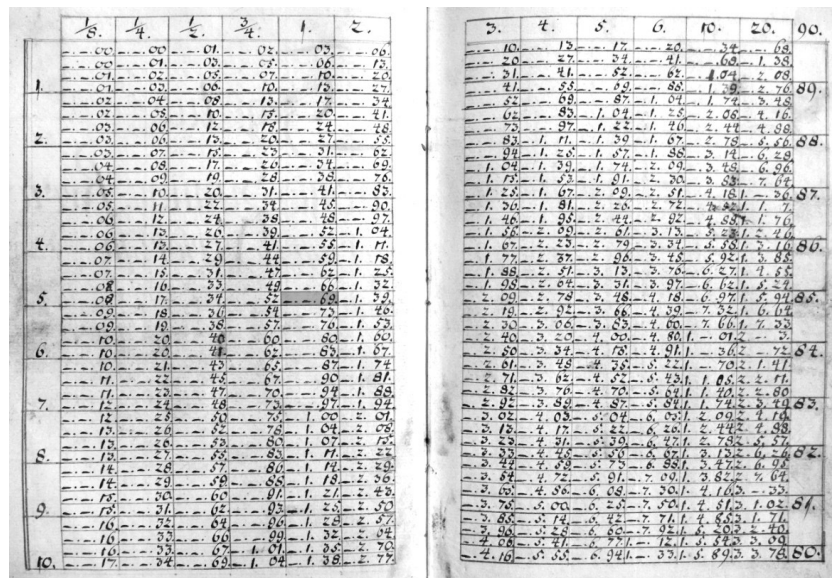 1/8. 1/4. 1/2. 3/4. 1. 2.
00. 00. 01. 02. 03. 06.
00. 01. 03. 05. 06. 13.
01. 02. 05. 07. 10. 20.
1. 01. 03. 06. 10. 13. 27.
02. 04. 08. 13. 17. 34.
02. 05. 10. 15. 20. 41.
03. 06. 12. 18. 24. 48.
2. 03. 06. 13. 20. 27. 55.
03. 07. 15. 23. 31. 62.
04. 08. 17. 26. 34. 69.
04. 09. 19. 28. 38. 76.
3. 05. 10. 20. 31. 41. 83.
05. 11. 22. 34. 45. 90.
06. 12. 24. 38. 48. 97.
06. 13. 26. 39. 52. 1.04.
4. 06. 13. 27. 41. 55. 1.11.
07. 14. 29. 44. 59. 1.18.
07. 15. 31. 47. 62. 1.25.
08. 16. 33. 49. 66. 1.32.
5. 08. 17. 34. 52. 69. 1.39.
09. 18. 36. 54. 73. 1.46.
09. 19. 38. 57. 76. 1.53.
10. 20. 40. 60. 80. 1.60.
6. 10. 20. 41. 62. 83. 1.67.
10. 21. 43. 65. 87. 1.74
11. 22. 45. 67. 90. 1.81.
11. 23. 47. 70. 94. 1.88.
7. 12. 24. 48. 73. 97. 1.94.
12. 25. 50. 75. 1.00. 2.01.
13. 26. 52. 78. 1.04. 2.08.
13. 26. 53. 80. 1.07. 2.15.
8. 13. 27. 55. 83. 1.11. 2.22.
14. 28. 57. 86. 1.14. 2.29.
14. 29. 59. 88. 1.18. 2.36.
15. 30. 60. 91. 1.21. 2.43.
9. 15. 31. 62. 93. 1.25. 2.50
16. 32. 64. 96. 1.28. 2.57.
16. 33. 66. 99. 1.32. 2.64
16. 33. 67. 1.01. 1.35. 2.70
10. 17. 34. 69. 1.04. 1.38. 2.77
3. 4. 5. 6. 10. 20. 90.
10. 13. 17. 20. 34. 68.
20. 27. 34. 41. 69. 1.38.
31. 41. 52. 62. 1.04. 2.08.
41. 55. 69. 83. 1.39. 2.76 89.
52. 69. 87. 1.04. 1.74. 3.48
62. 83. 1.04. 1.25. 2.08. 4.16.
73. 97. 1.22. 1.46. 2.44. 4.88.
83. 1.11. 1.39. 1.67. 2.78. 5.56 88.
94. 1.25. 1.57. 1.88. 3.14. 6.28
1.04. 1.39. 1.74. 2.09. 3.48. 6.96.
1.15. 1.53. 1.91. 2.30. 3.83. 7.64
1.25. 1.67. 2.09. 2.51. 4.18. 87.
1.36. 1.81. 2.26. 2.72.
1.46. 1.95. 2.44. 2.92. 4.88. 1.76
1.56. 2.09. 2.61. 3.13. 5.23. 2.46
1.67. 2.23. 2.79. 3.34. 5.58. 3.16 86.
1.77. 2.37. 2.96. 3.45. 5.92. 3.85.
1.88. 2.51. 3.13. 3.76. 6.27. 4.55
1.98. 2.64. 3.31. 3.97. 6.62. 5.24
2.09. 2.78. 3.48. 4.18. 6.97. 5.94 85.
2.19. 2.92. 3.66. 4.39. 7.32. 6.64
2.30. 3.06. 3.83. 4.60. 7.66. 7.33
2.40. 3.20. 4.00. 4.80. 1.01. 2.3.
2.50. 3.34. 4.18. 4.91. 1.36. 2.72 84.
2.61. 3.48. 4.35. 5.22. 1.70. 2.1.41
2.71. 3.62. 4.52. 5.43. 1.1.05. 2.2.11.
2.82. 3.76. 4.70. 5.64. 1.1.40. 2.2.80
2.92. 3.89. 4.87. 5.84. 1.1.74. 2.3.49 83.
3.02. 4.03. 5.04. 6.05. 1.2.09. 2.4.19
3.13. 4.17. 5.22. 6.26. 1.2.44. 2.4.88.
3.23. 4.31. 5.39. 6.47. 1.2.78. 2.5.57
3.33. 4.45. 5.56. 6.67. 1.3.13. 2.6.26 82.
3.44. 4.59. 5.73. 6.88. 1.3.47. 2.6.95
3.54. 4.72. 5.91. 7.09. 1.3.82. 2.7.64
3.65. 4.86. 6.08. 7.30. 1.4.16. 3.33.
3.75. 5.00. 6.25. 7.50. 1.4.51. 3.1.02. 81.
3.85. 5.14. 6.42. 7.71. 1.4.85. 3.1.71.
3.96. 5.28. 6.60. 7.92. 1.5.20. 3.2.40
4.06. 5.41. 6.77. 1.12. 1.5.54. 3.3.09
4.16. 5.55. 6.94. 1.33. 1.5.89. 3.3.78 80.